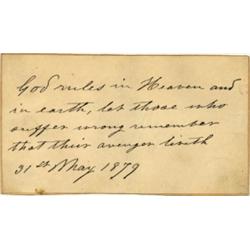 God rules in Heaven and
in earth, let those who
suffer wrong remember
that their avenger liveth
31st May 1879